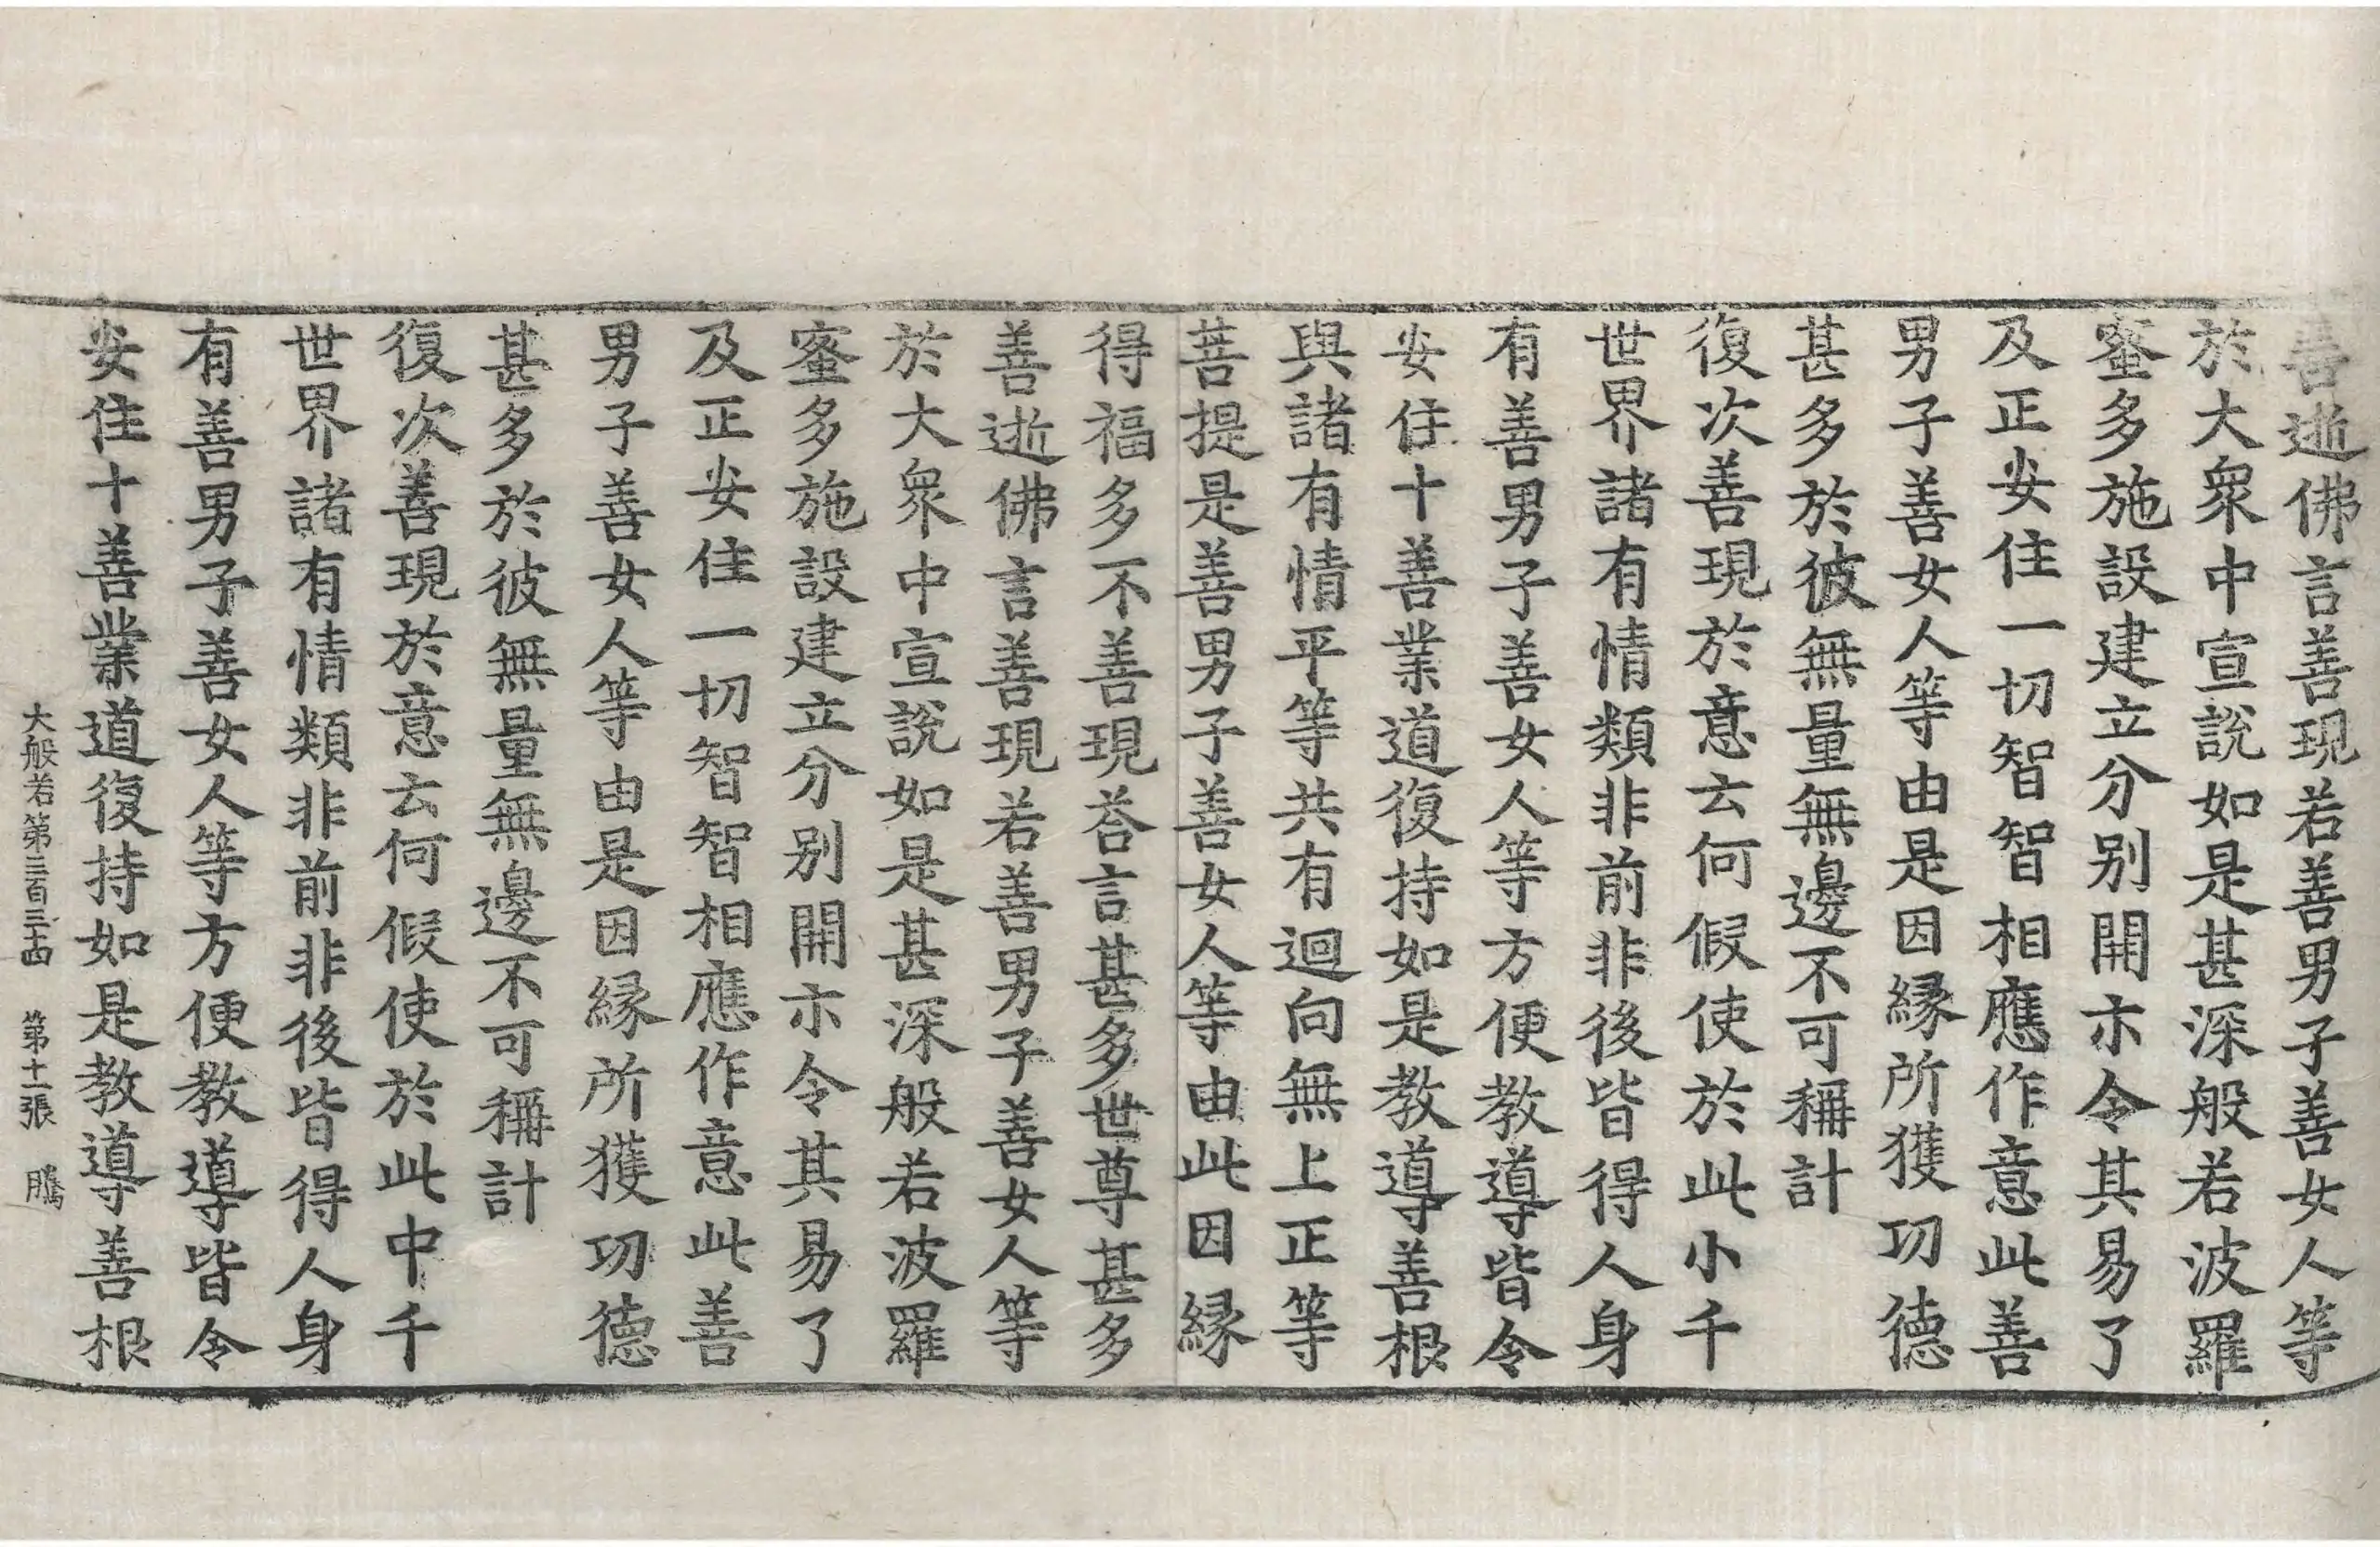 善逝佛言善現若善男子善女人等
於大衆中宣說如是甚深般若波羅
蜜多施設建立分别開示令其易了
及正安住一切智智相應作意此善
男子善女人等由是因縁所獲功德
甚多於彼無量無邊不可稱計
復次善現於意云何假使於此小千
世界諸有情類非前非後皆得人身
有善男子善女人等方便教導皆令
安住十善業道復持如是教導善根
與諸有情平等共有迴向無上正等
菩提是善男子善女人等由此因縁
得福多不善現荅言甚多世尊甚多
善逝佛言善現若善男子善女人等
於大衆中宣說如是甚深般若波羅
蜜多施設建立分别開示令其易了
及正安住一切智智相應作意此善
男子善女人等由是因縁所獲功德
甚多於彼無量無邊不可稱計
復次善現於意云何假使於此中千
世界諸有情類非前非後皆得人身
有善男子善女人等方便教導皆令
安住十善業道復持如是教導善根
大般若第三百三十四 第十一張 騰